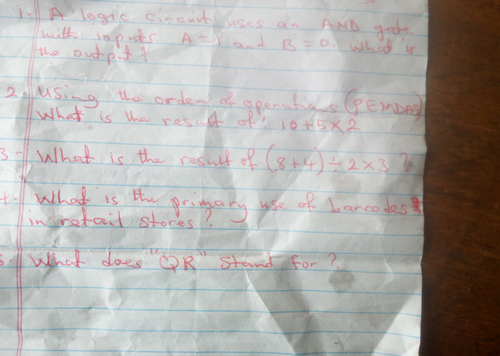 1. A logic circuit uses an AND gate
with inputs A = 1 and B = 0. What is
the output?
2. Using the order of operations (PEMDAS)
What is the result of: 10+5×2
3- What is the result of (8+4) ÷ 2×3 ?
4. What is the primary use of barcodes
in retail stores?
5 What does "QR" stand for?